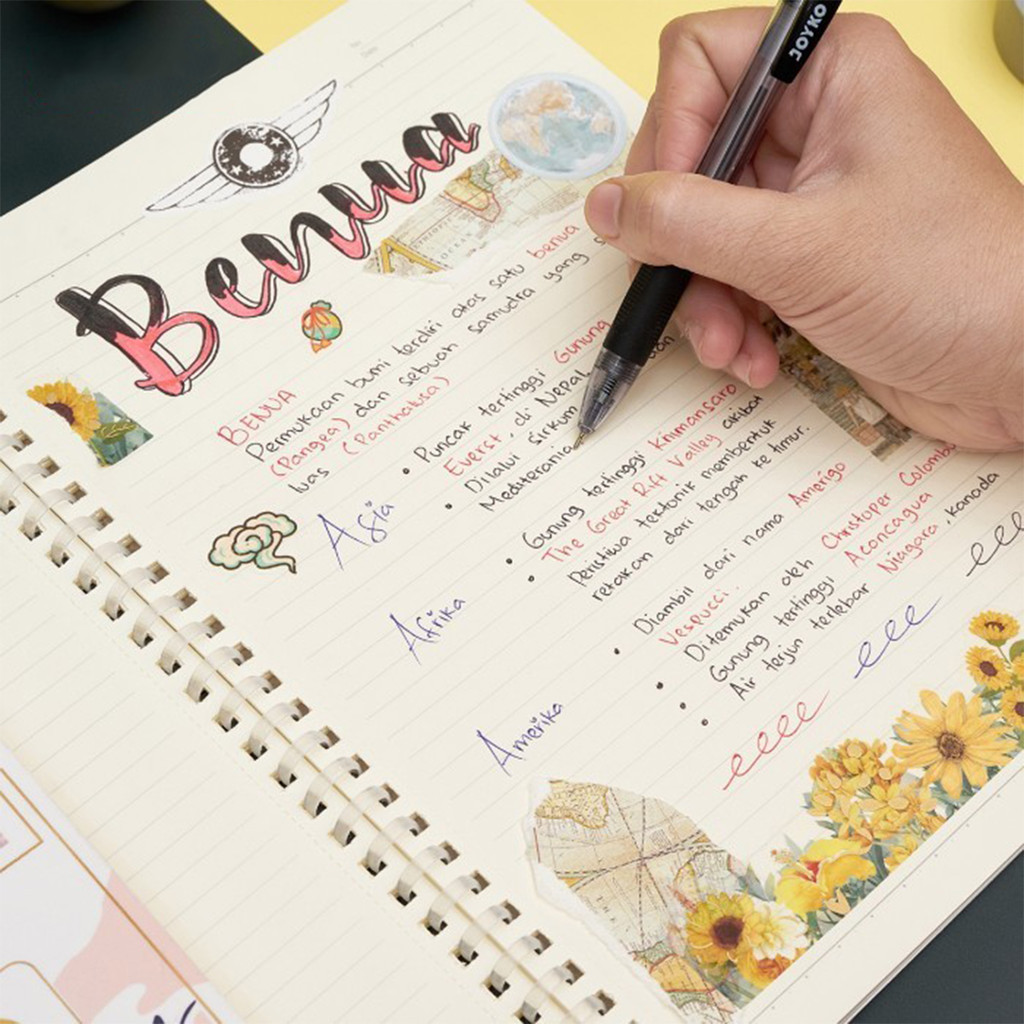 JOYKO
Benua
BENUA
Permukaan bumi terdiri atas satu benua
(Pangea) dan sebuah samudra yang
luas (Panthalasa)
Asia
• Puncak tertinggi Gunung
Everst, di Nepal,
• Dilalui sirkum
Mediterania
Afrika
• Gunung tertinggi Kilimansaro
The Great Rift Valley akibat
• Peristiwa tektonik membentuk
retakan dari tengah ke timur.
Amerika
• Diambil dari nama Amerigo
Vespucci.
• Ditemukan oleh Christoper Colombus
• Gunung tertinggi Aconcagua
• Air terjun terlebar Niagara, kanada